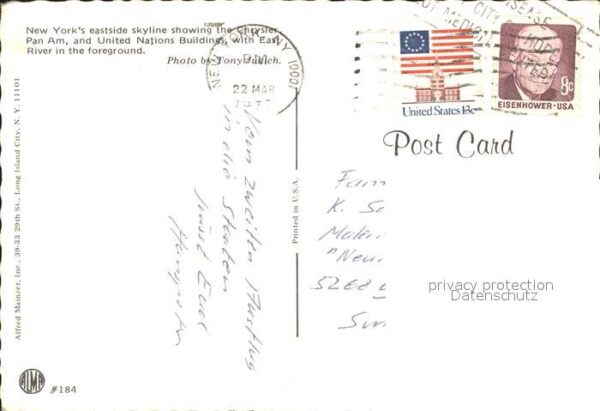 New York's eastside skyline showing the Chrysler,
Pan Am, and United Nations Buildings, with East
River in the foreground.
Photo by Tony Julich.
NEW YORK, NY 10001
PM
22 MAR
DISEASE
CITY
HOPE
United States 13c
EISENHOWER·USA
8c
Post Card
Alfred Mainzer, Inc., 39-33 29th St., Long Island City, N.Y. 11101
ALMA
#184
Printed in U.S.A.
Vom zweiten
in die Staaten
grüsst Euch
Fam
K. Se
"Neu
5268
privacy protection
Datenschutz